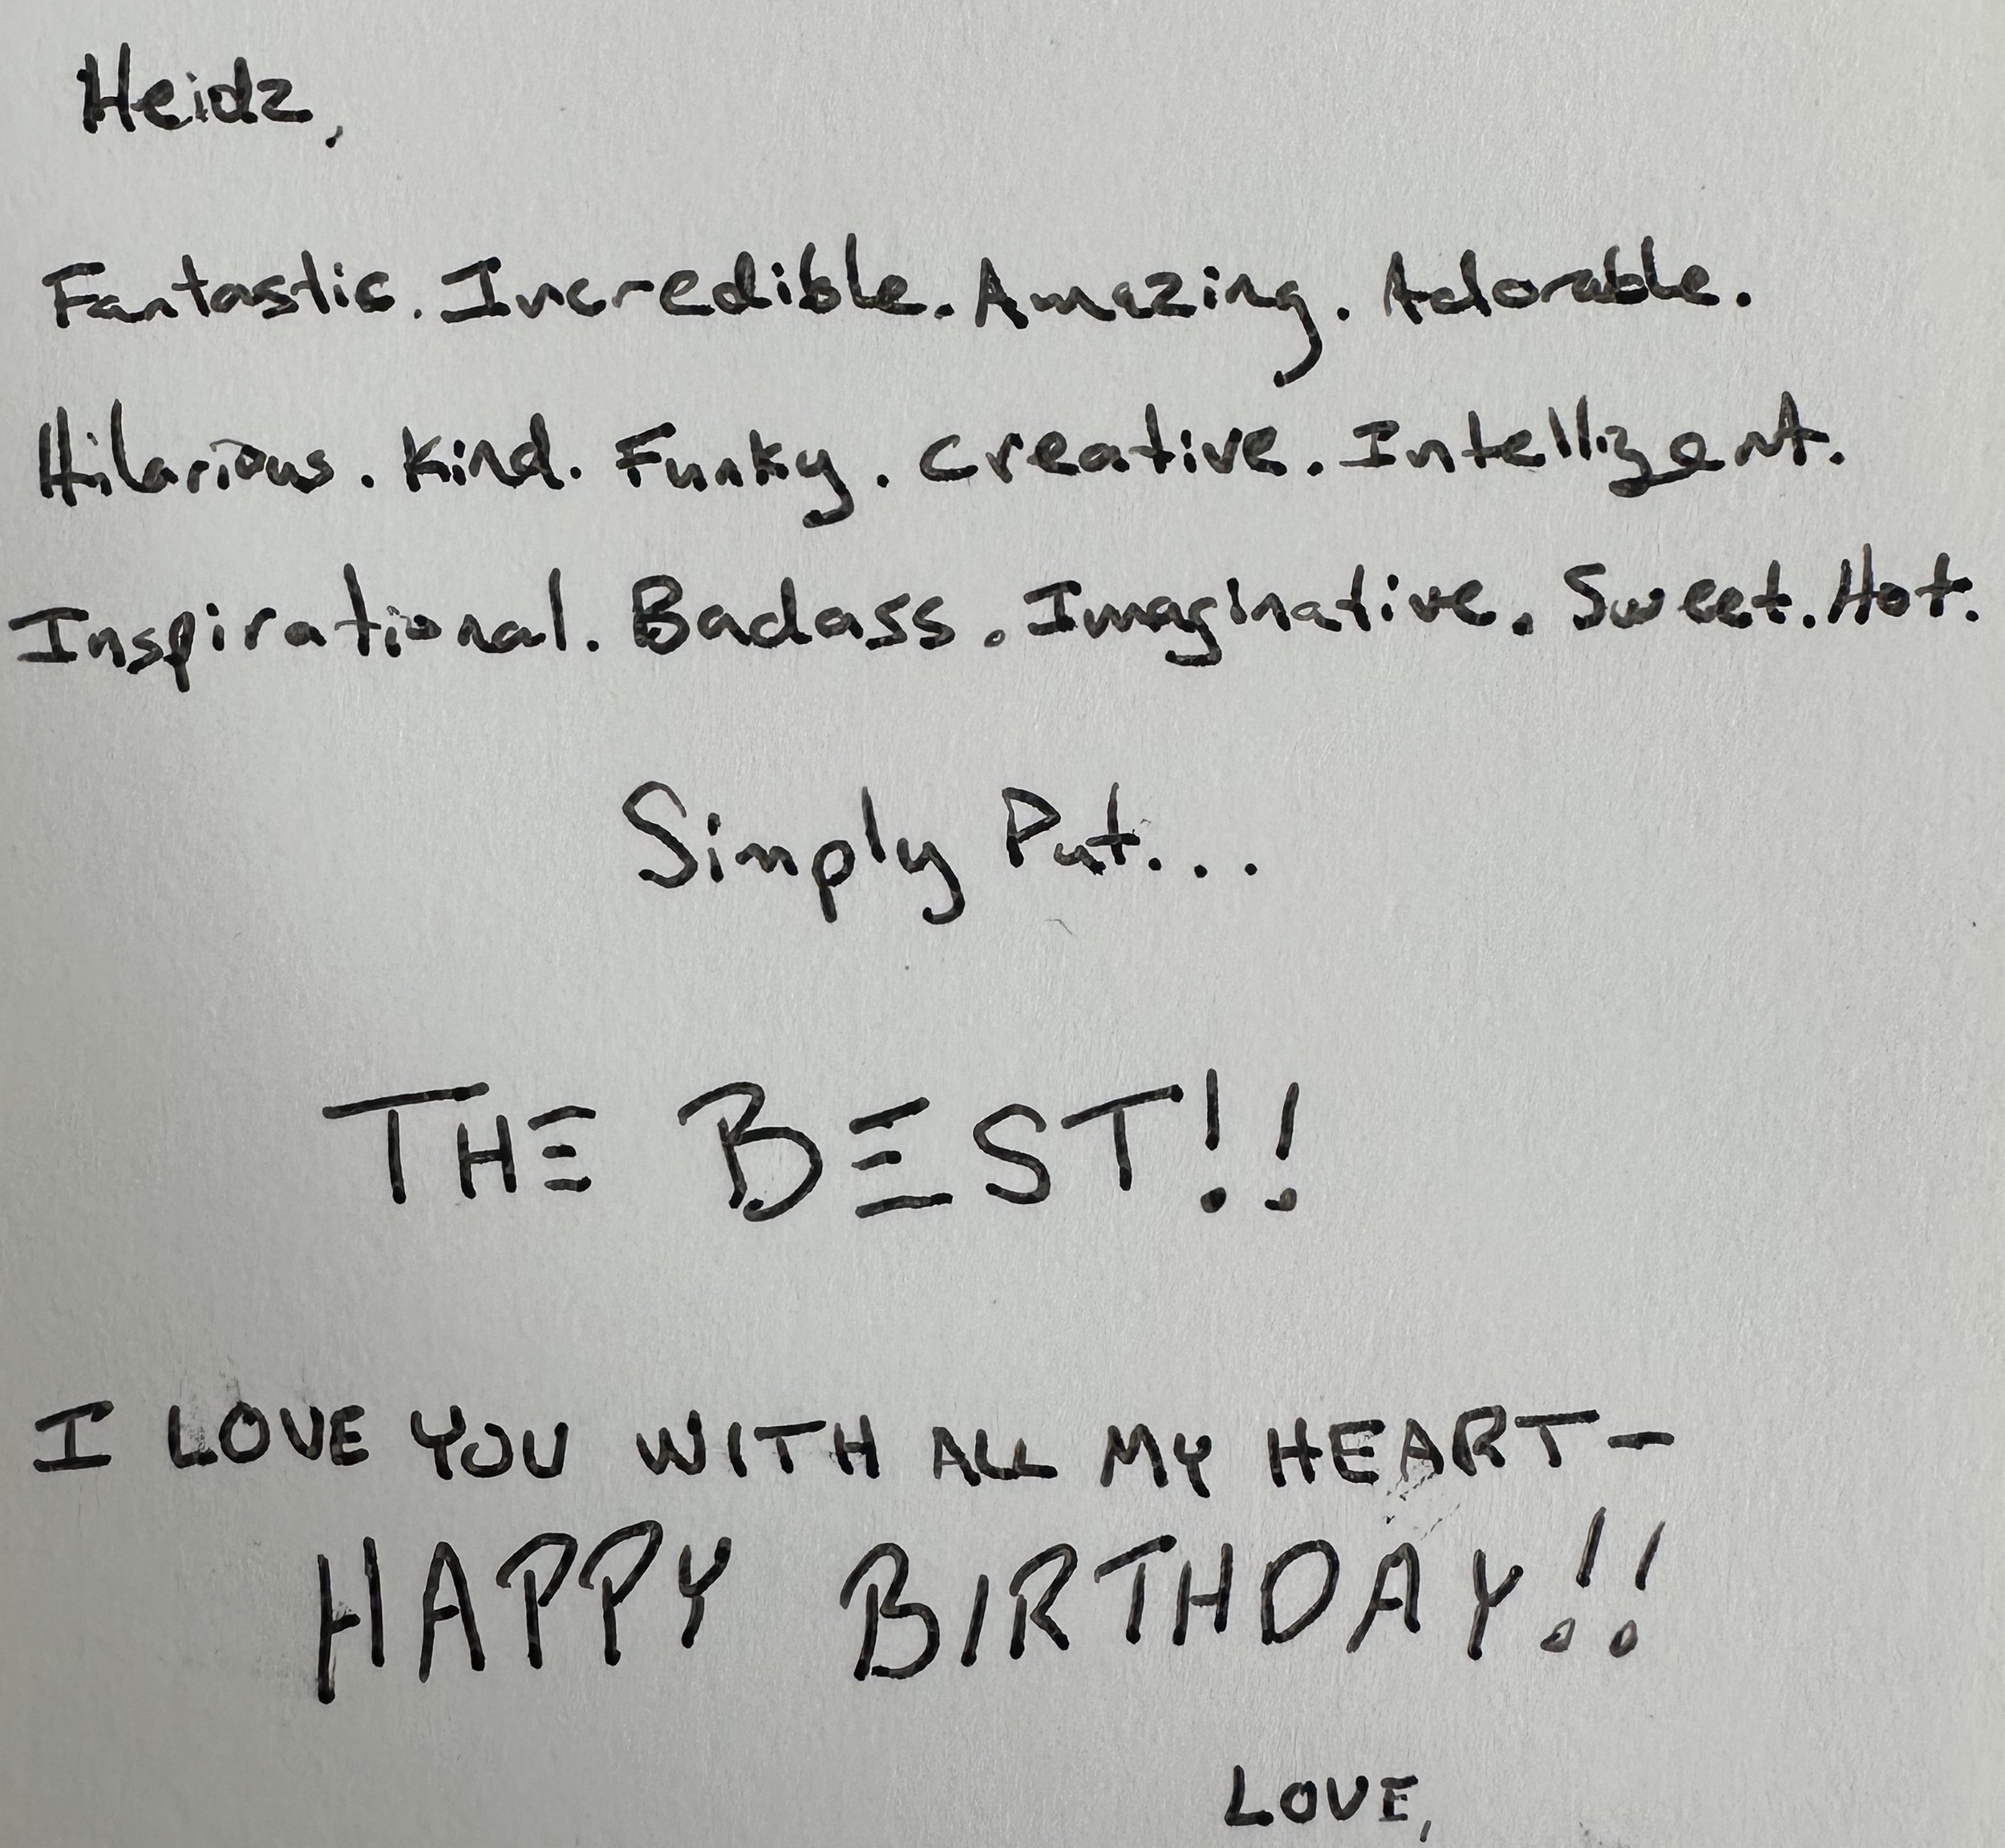 Heidz,
Fantastic. Incredible. Amazing. Adorable.
Hilarious. Kind. Funky. Creative. Intelligent.
Inspirational. Badass. Imaginative. Sweet. Hot.
Simply Put...
THE BEST!!
I LOVE YOU WITH ALL MY HEART-
HAPPY BIRTHDAY!!
LOVE,